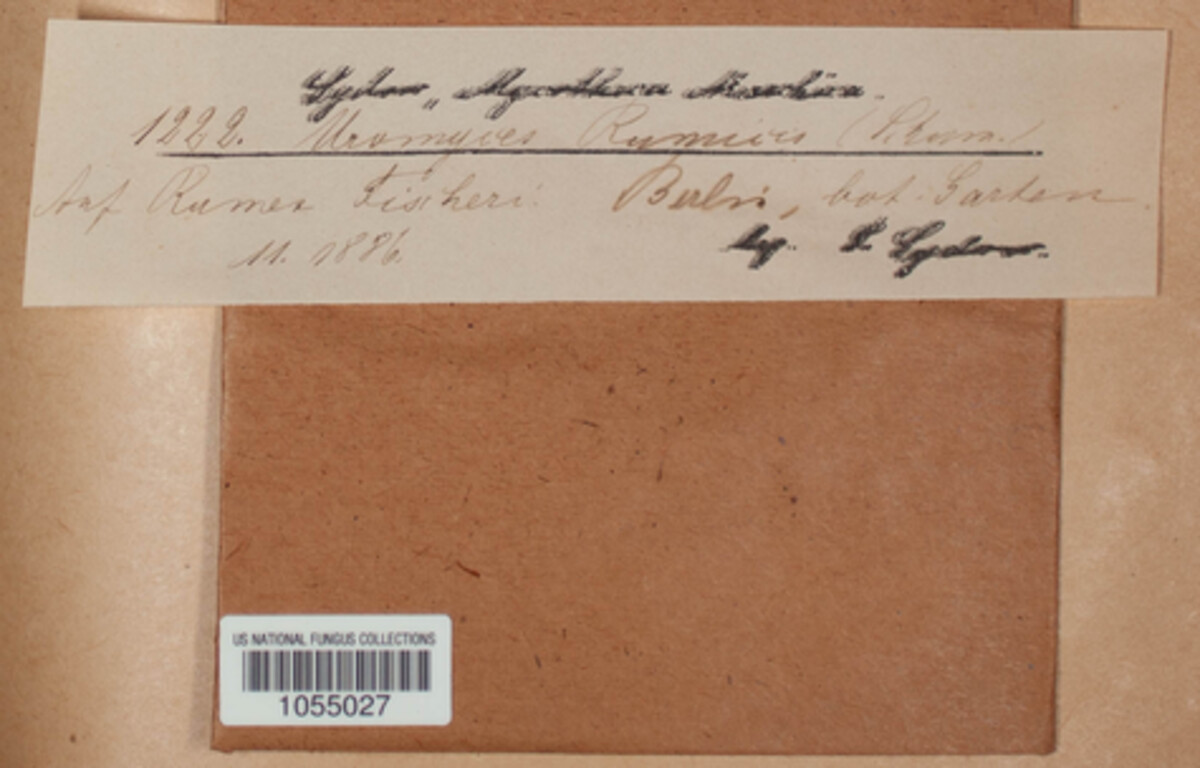 Sydow, Mycotheca Marchica.
1222. Uromyces Rumicis (Schum.)
Auf Rumex Fischeri. Berlin, bot. Garten.
11. 1886.
leg. P. Sydow.
US NATIONAL FUNGUS COLLECTIONS
1055027